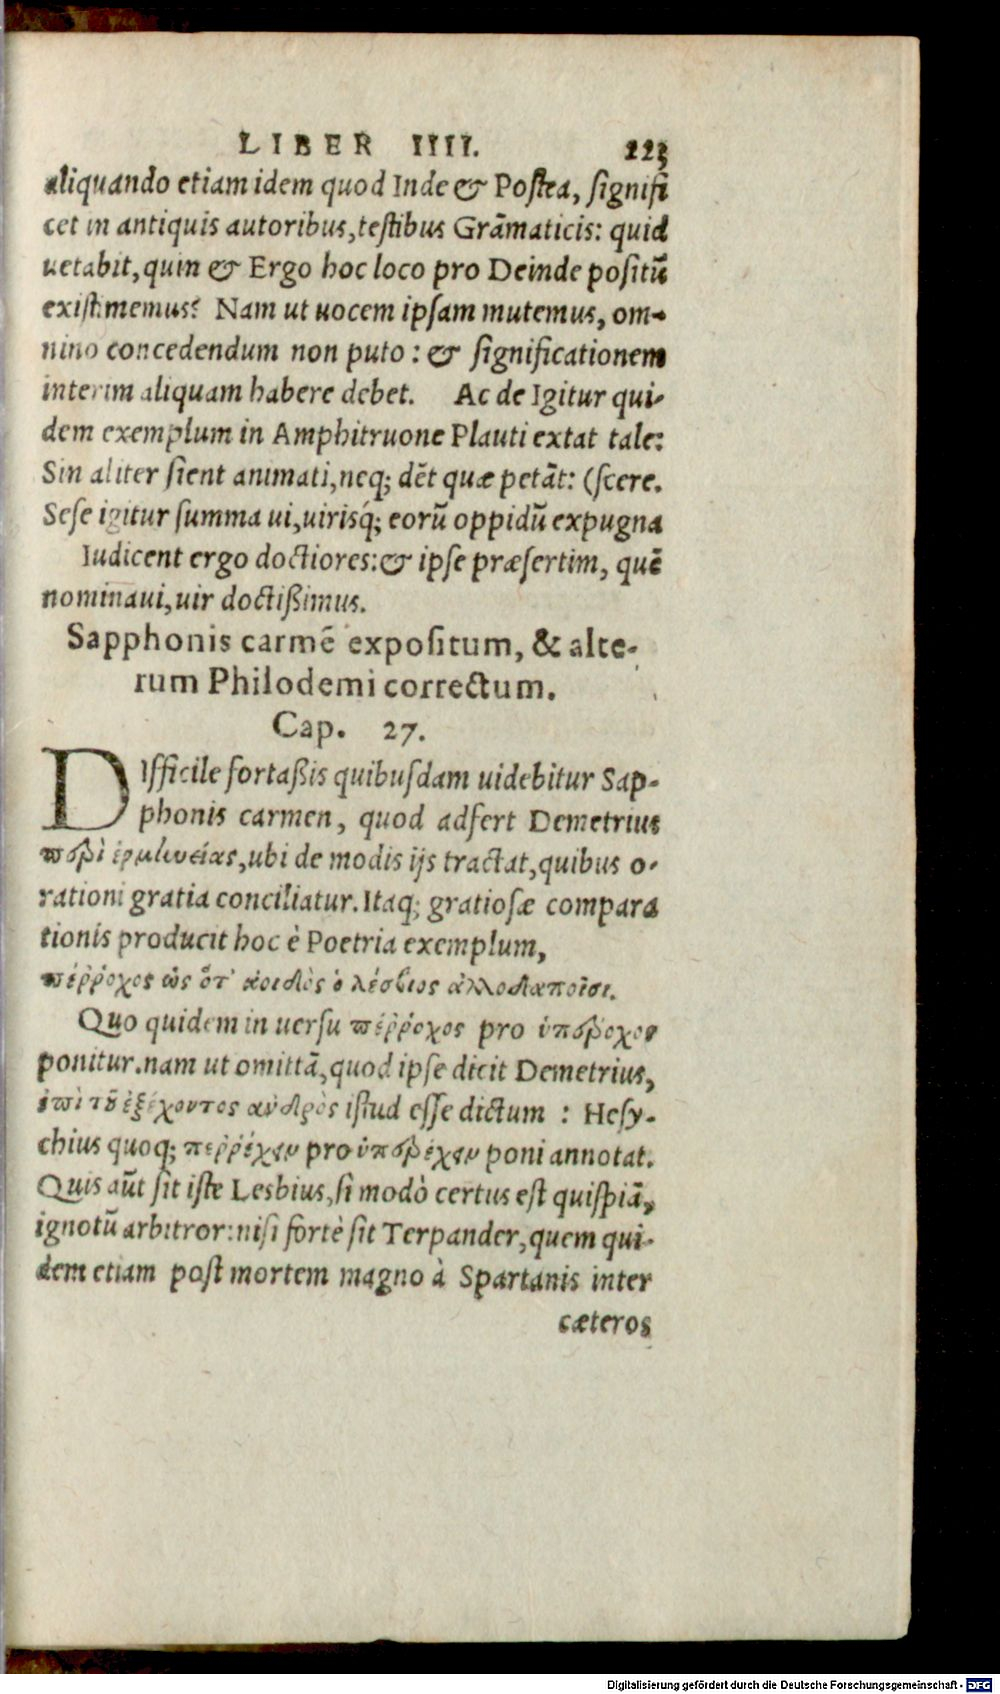 LIBER IIII. 223
aliquando etiam idem quod Inde & Postea, signifi
cet in antiquis autoribus, testibus Grāmaticis: quid
uetabit, quin & Ergo hoc loco pro Deinde positū
existimemus? Nam ut uocem ipsam mutemus, om-
nino concedendum non puto: & significationem
interim aliquam habere debet. Ac de Igitur qui-
dem exemplum in Amphitruone Plauti extat tale:
Sin aliter sient animati, neq; dēt quæ petāt: (scere.
Sese igitur summa ui, uirisq́; eorū oppidū expugna
Iudicent ergo doctiores: & ipse præsertim, quē
nominaui, uir doctißimus.
Sapphonis carmē expositum, & alte-
rum Philodemi correctum.
Cap. 27.
DIfficile fortaßis quibusdam uidebitur Sap-
phonis carmen, quod adfert Demetrius
περὶ ἑρμηνείας, ubi de modis ijs tractat, quibus o-
rationi gratia conciliatur. Itaq; gratiosæ compara
tionis producit hoc è Poetria exemplum,
πέῤῥοχος ὡς ὅτ' ἀοιδὸς ὁ λέσβιος ἀλλοδαποῖσι.
Quo quidem in uersu πέῤῥοχος pro ὑπέροχος
ponitur. nam ut omittā, quod ipse dicit Demetrius,
ἐπὶ τοῦ ἐξέχοντος ἀνδρὸς istud esse dictum : Hesy-
chius quoq; περῤέχειν pro ὑπερέχειν poni annotat.
Quis aūt sit iste Lesbius, si modò certus est quispiā,
ignotū arbitror: nisi fortè sit Terpander, quem qui-
dem etiam post mortem magno à Spartanis inter
cæteros
Digitalisierung gefördert durch die Deutsche Forschungsgemeinschaft - DFG